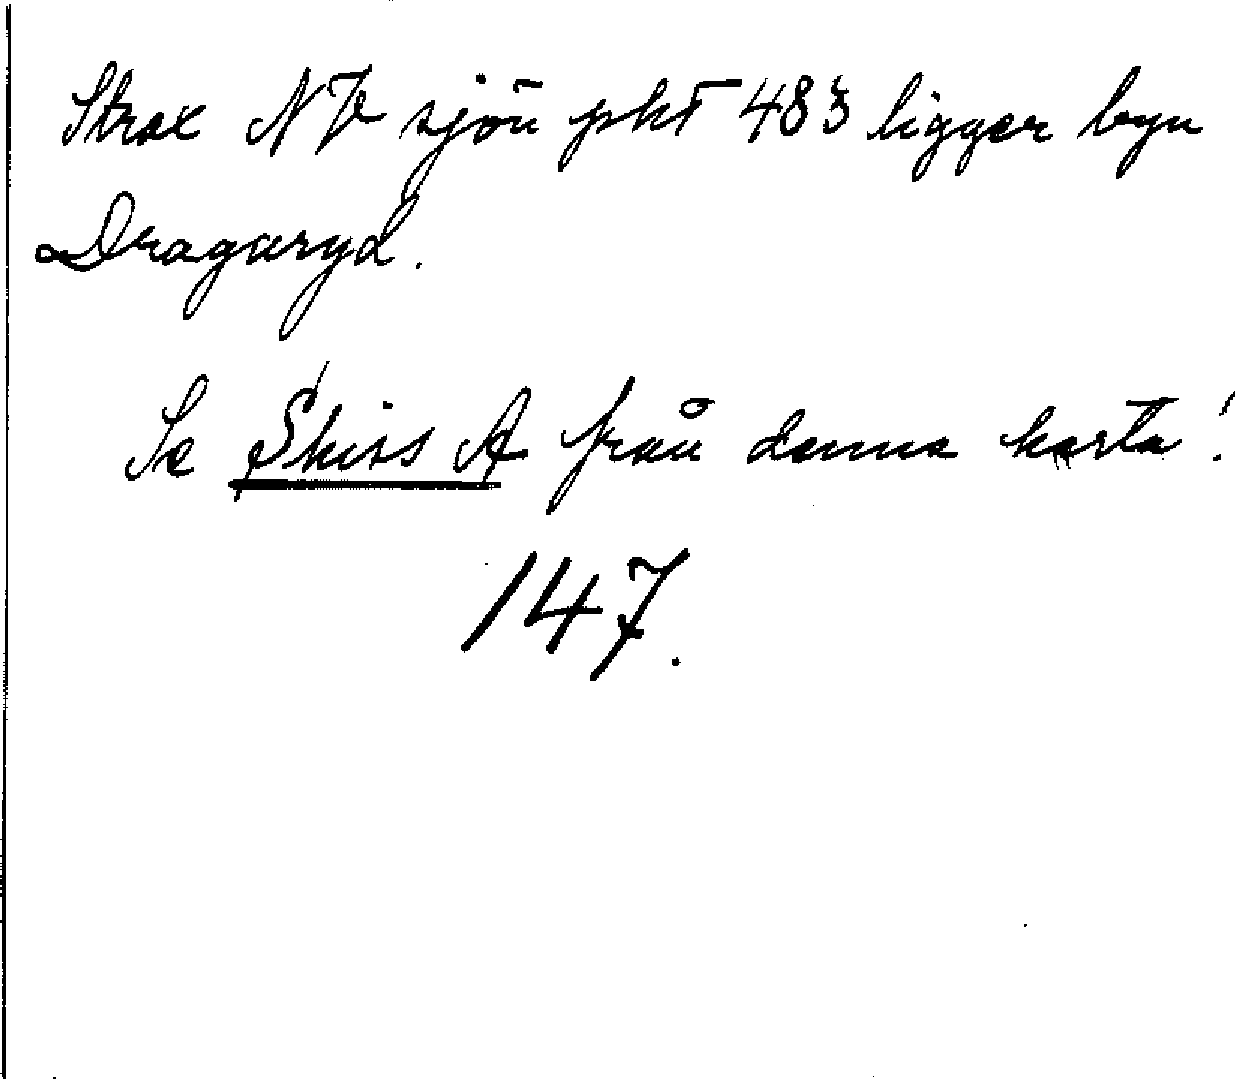 Strax NV sjön pkt 483 ligger byn
Dragaryd.
Se Skiss A från denna karta!
147.